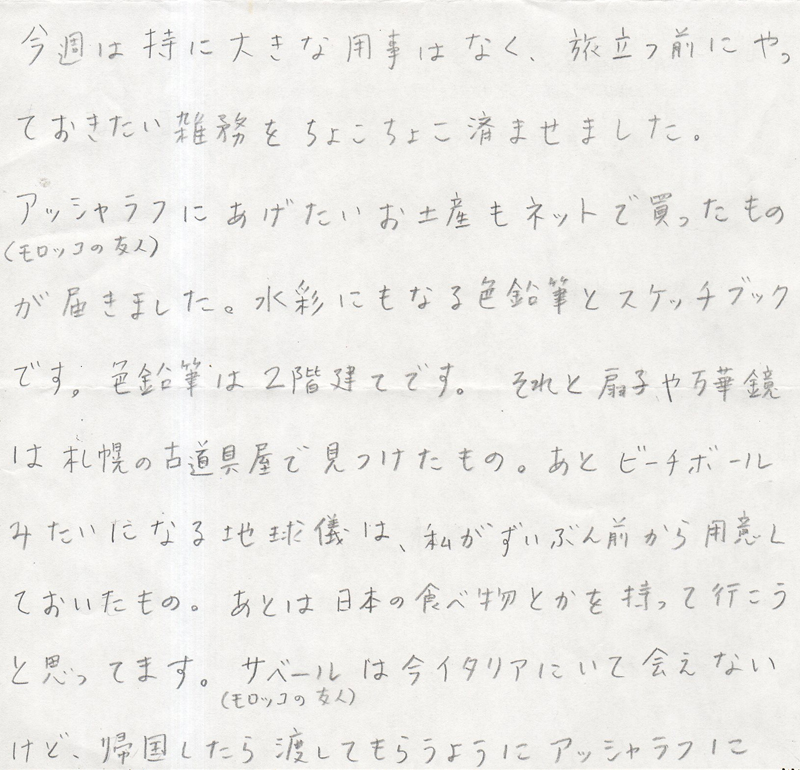 今週は持に大きな用事はなく、旅立つ前にやっ
ておきたい雑務をちょこちょこ済ませました。
アッシャラフにあげたいお土産もネットで買ったもの
(モロッコの友人)
が届きました。水彩にもなる色鉛筆とスケッチブック
です。色鉛筆は2階建てです。それと扇子や万華鏡
は札幌の古道具屋で見つけたもの。あとビーチボール
みたいになる地球儀は、私がずいぶん前から用意し
ておいたもの。あとは日本の食べ物とかを持って行こう
と思ってます。サベールは今イタリアにいて会えない
(モロッコの友人)
けど、帰国したら渡してもらうようにアッシャラフに